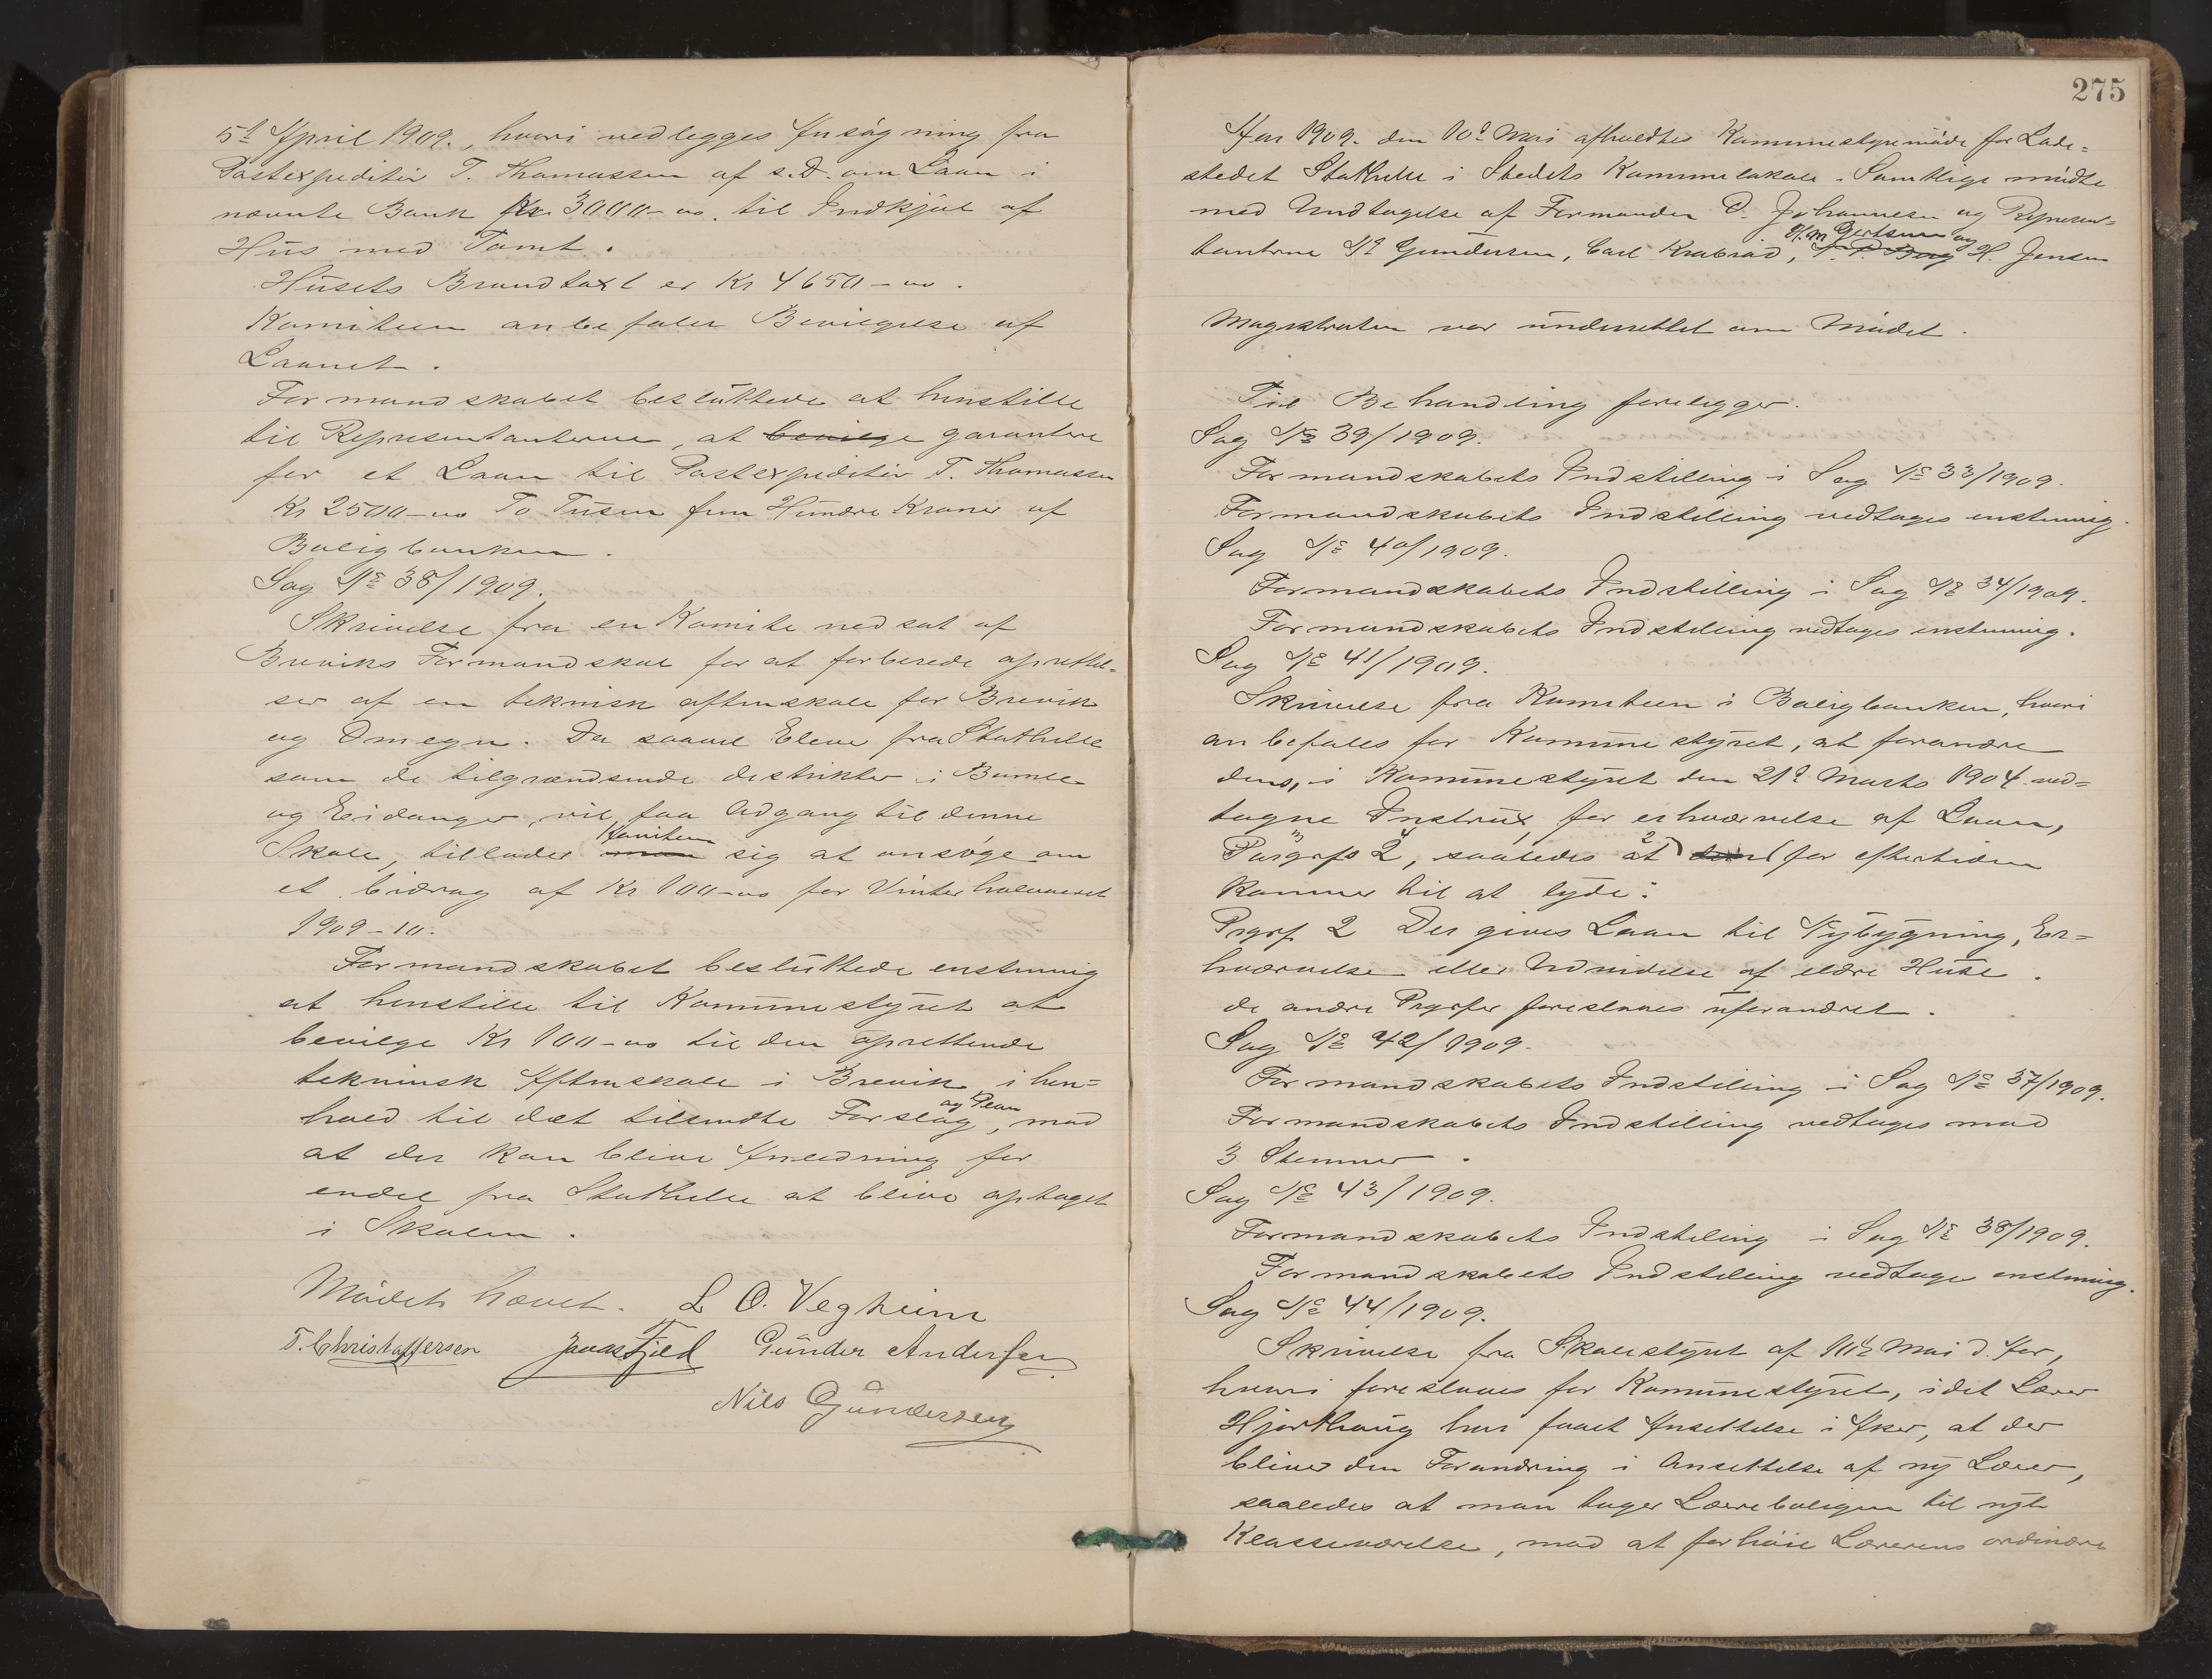 5t April 1909., hvori vedlegges Ansøgning fra
Postexpeditør T. Thomassen af s. D. om Laan i
nævnte Bank Kr 3000-oo. til Indkjøb af
Hus med Tomt.
Husets Brandtaxt er Kr 4650-oo.
Komiteen anbefaler Bevilgelse af
Laanet.
Formandskabet besluttede at henstille
til Representanterne, at bevilge garantere
for et Laan til Postexpeditør T. Thomassen
Kr 2500-oo To Tusen fem Hundre Kroner af
Boligbanken.
Sag No 38/1909.
Skrivelse fra en Komite nedsat af
Breviks Formandskab for at forberede oprettel-
ser af en teknisk aftenskole for Brevik
og Omegn. Da saavel Elever fra Stathelle
som de tilgrændsende distrikter i Bamle
og Eidanger, vil faa Adgang til denne
Skole, tillader man Komiteen sig at ansøge om
et bidrag af Kr 100-oo for Vinterhalvaaret
1909-10.
Formandskabet besluttede enstemmig
at henstille til Kommunestyret at
bevilge Kr 100-oo til den oprettende
teknisk Aftenskole i Brevik, i hen-
hold til det tilsendte Forslag og Plan, mod
at der kan blive Anledning for
endel fra Stathelle at blive optaget
i Skolen.
Mødet hævet. L O. Vegheim
T. Christoffersen Jens Fjeld Gunder Andersen
Nils Gundersen
275
Aar 1909. den 10de Mai afholdtes Kommunestyremøde for Lade-
stedet Stathelle i Stedets Kommunelokale. Samtlige mødte
med Undtagelse af Formanden O. Johannesen og Represen-
tanterne No Gundersen, Carl Krabrød, M. Gertsen og H. Jensen
Magistraten var underrettet om Mødet.
Til Behandling foreligger.
Sag No 39/1909.
Formandskabets Indstilling i Sag No 33/1909.
Formandskabets Indstilling vedtages enstemmig.
Sag No 40/1909.
Formandskabets Indstilling i Sag No 34/1909.
Formandskabets Indstilling vedtages enstemmig.
Sag No 41/1909.
Skrivelse fra Komiteen i Boligbanken, hvori
anbefales for Kommunestyret, at forandre
dens, i Kommunestyret den 21de Marts 1904 ved-
tagne Instrux for erhværvelse af Laan,
Pargrfs 2, saaledes at den for eftertiden
kommer til at lyde:
Prgrf 2 Der gives Laan til Nybygning, Er-
hværvelse eller Udvidelse af eldre Huse.
de andre Prgrfer foreslaaes uforandret.
Sag No 42/1909.
Formandskabets Indstilling i Sag No 37/1909.
Formandskabets Indstilling vedtages mod
3 Stemmer.
Sag No 43/1909.
Formandskabets Indstilling i Sag No 38/1909.
Formandskabets Indstilling vedtages enstemmig.
Sag No 44/1909.
Skrivelse fra Skolestyret af 10de Mai d. Aar,
hvori foreslaaes for Kommunestyret, idet Lærer
Hjorthaug har faaet Ansettelse i Aker, at der
bliver den Forandring i Ansettelse af ny Lærer,
saaledes at man tager Lærerboligen til nyt
Klasseværelse, mod at forhøie Lærerens ordinære